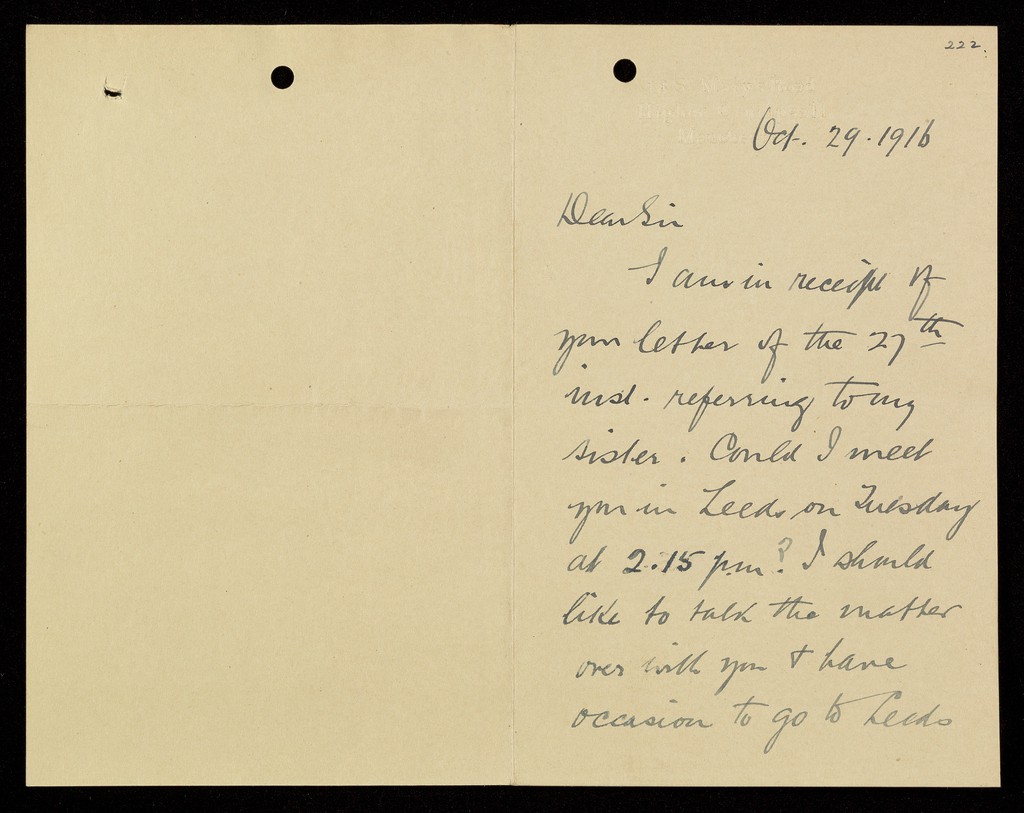 222.
Oct. 29. 1916
Dear Sir
I am in receipt of
your letter of the 27th
inst. referring to my
sister. Could I meet
you in Leeds on Tuesday
at 2.15 p.m? I should
like to talk the matter
over with you & have
occasion to go to Leeds